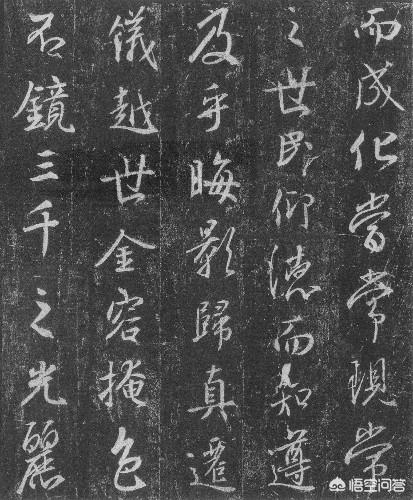 而成化當常現常
之世民仰德而知遵
及乎晦影歸真遷
儀越世金容掩色
不鏡三千之光麗
悟空问答